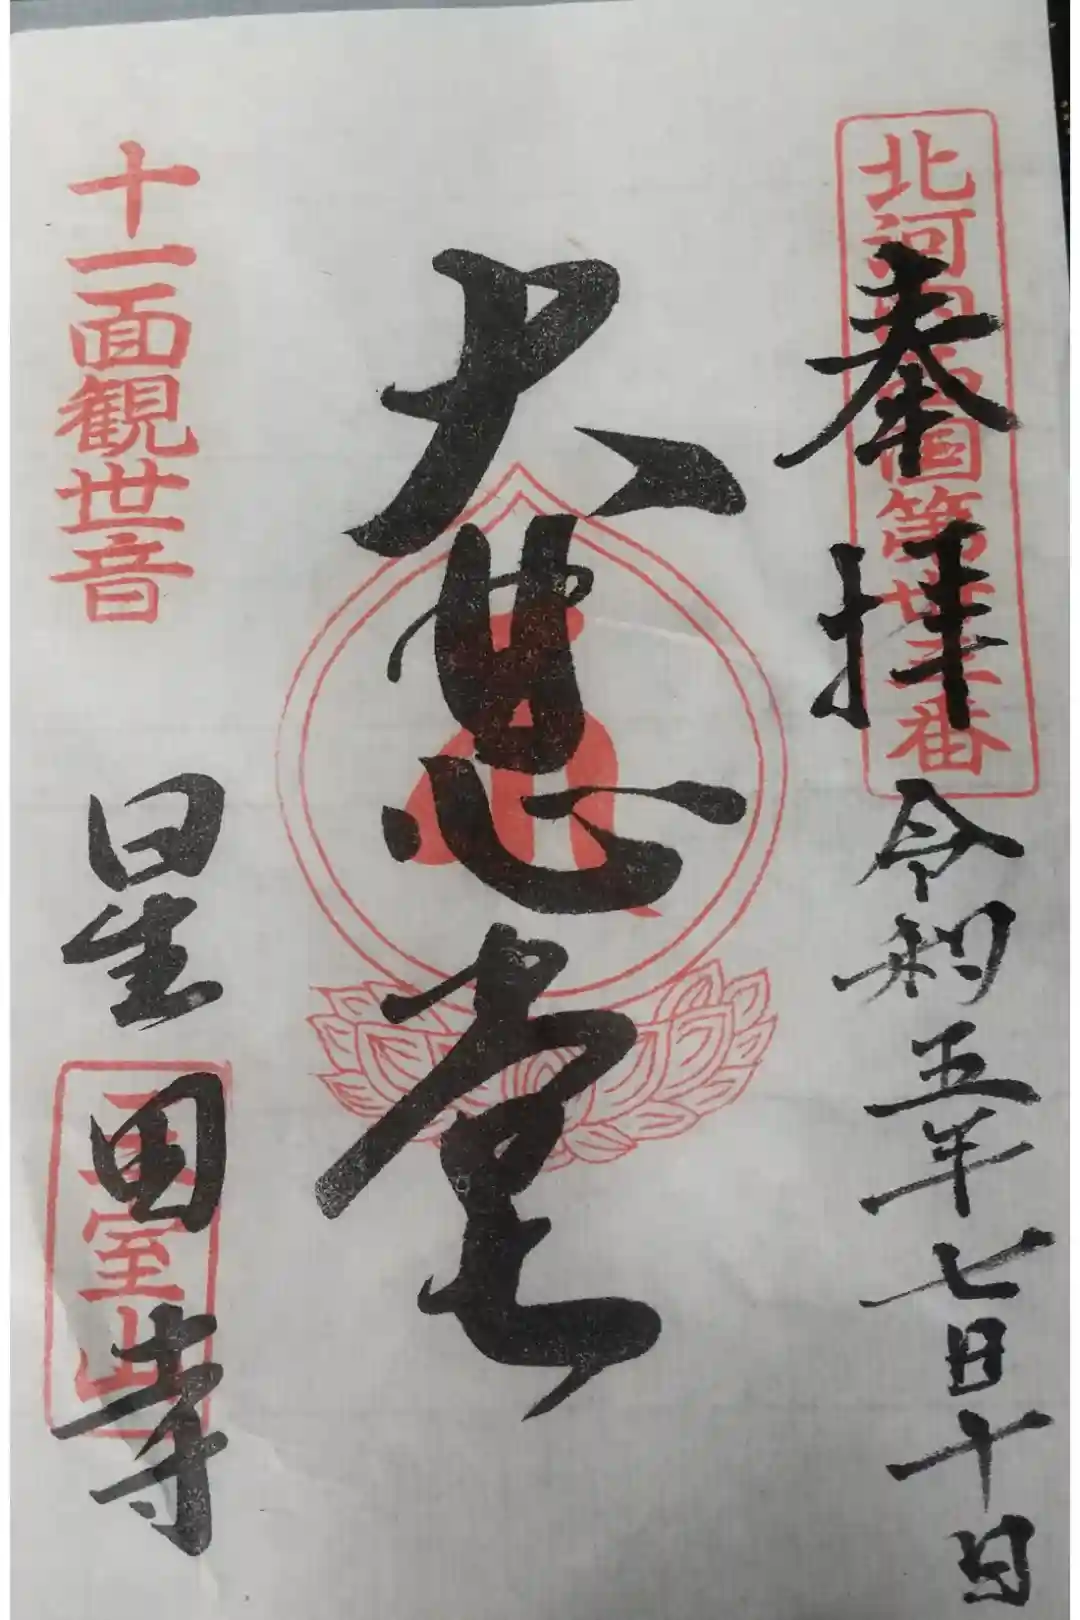 北河内西国第三番
奉拝
令和五年七月十日
大悲堂
十一面観世音
星田寺
室山